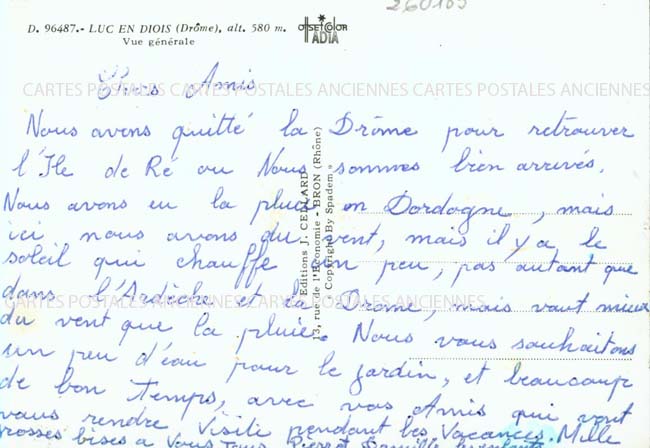 260185
D. 96487.- LUC EN DIOIS (Drôme), alt. 580 m.
Vue générale
OFFSETCOLOR
IADIA
Chers Amis
CARTES POSTALES ANCIENNES CARTES POSTALES ANCIENNES CARTES POSTALES ANCIENNES
Nous avons quitté la Drôme pour retrouver
l'Ile de Ré ou Nous sommes bien arrivés.
Nous avons eu la pluie en Dordogne, mais
ici nous avons du vent, mais il y a le
soleil qui chauffe un peu, pas autant que
dans l'Ardèche et la Drôme, mais vaut mieux
CARTES POSTALES ANCIENNES CARTES POSTALES ANCIENNES
du vent que la pluie. Nous vous souhaitons
un peu d'eau pour le jardin, et beaucoup
de bon temps, avec vos Amis qui vont
vous rendre visite pendant les Vacances. Mille
grosses bises a Vous Tous
Editions J. CELLARD
13, rue de l'Economie - BRON (Rhône)
Copyright By Spadem »